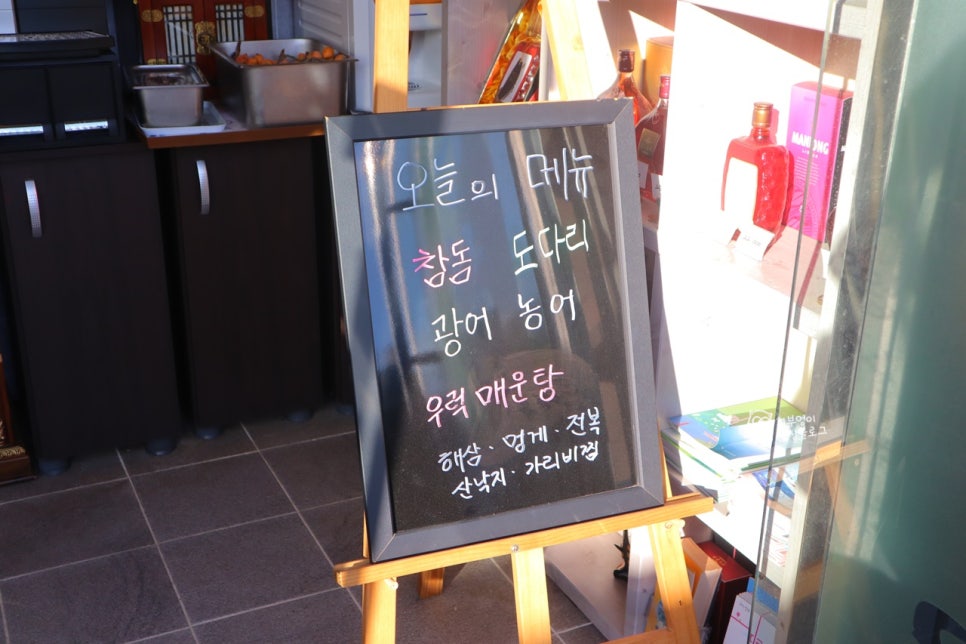 오늘의 메뉴
참돔 도다리
광어 농어
우럭 매운탕
해삼 · 멍게 · 전복
산낙지 · 가리비찜